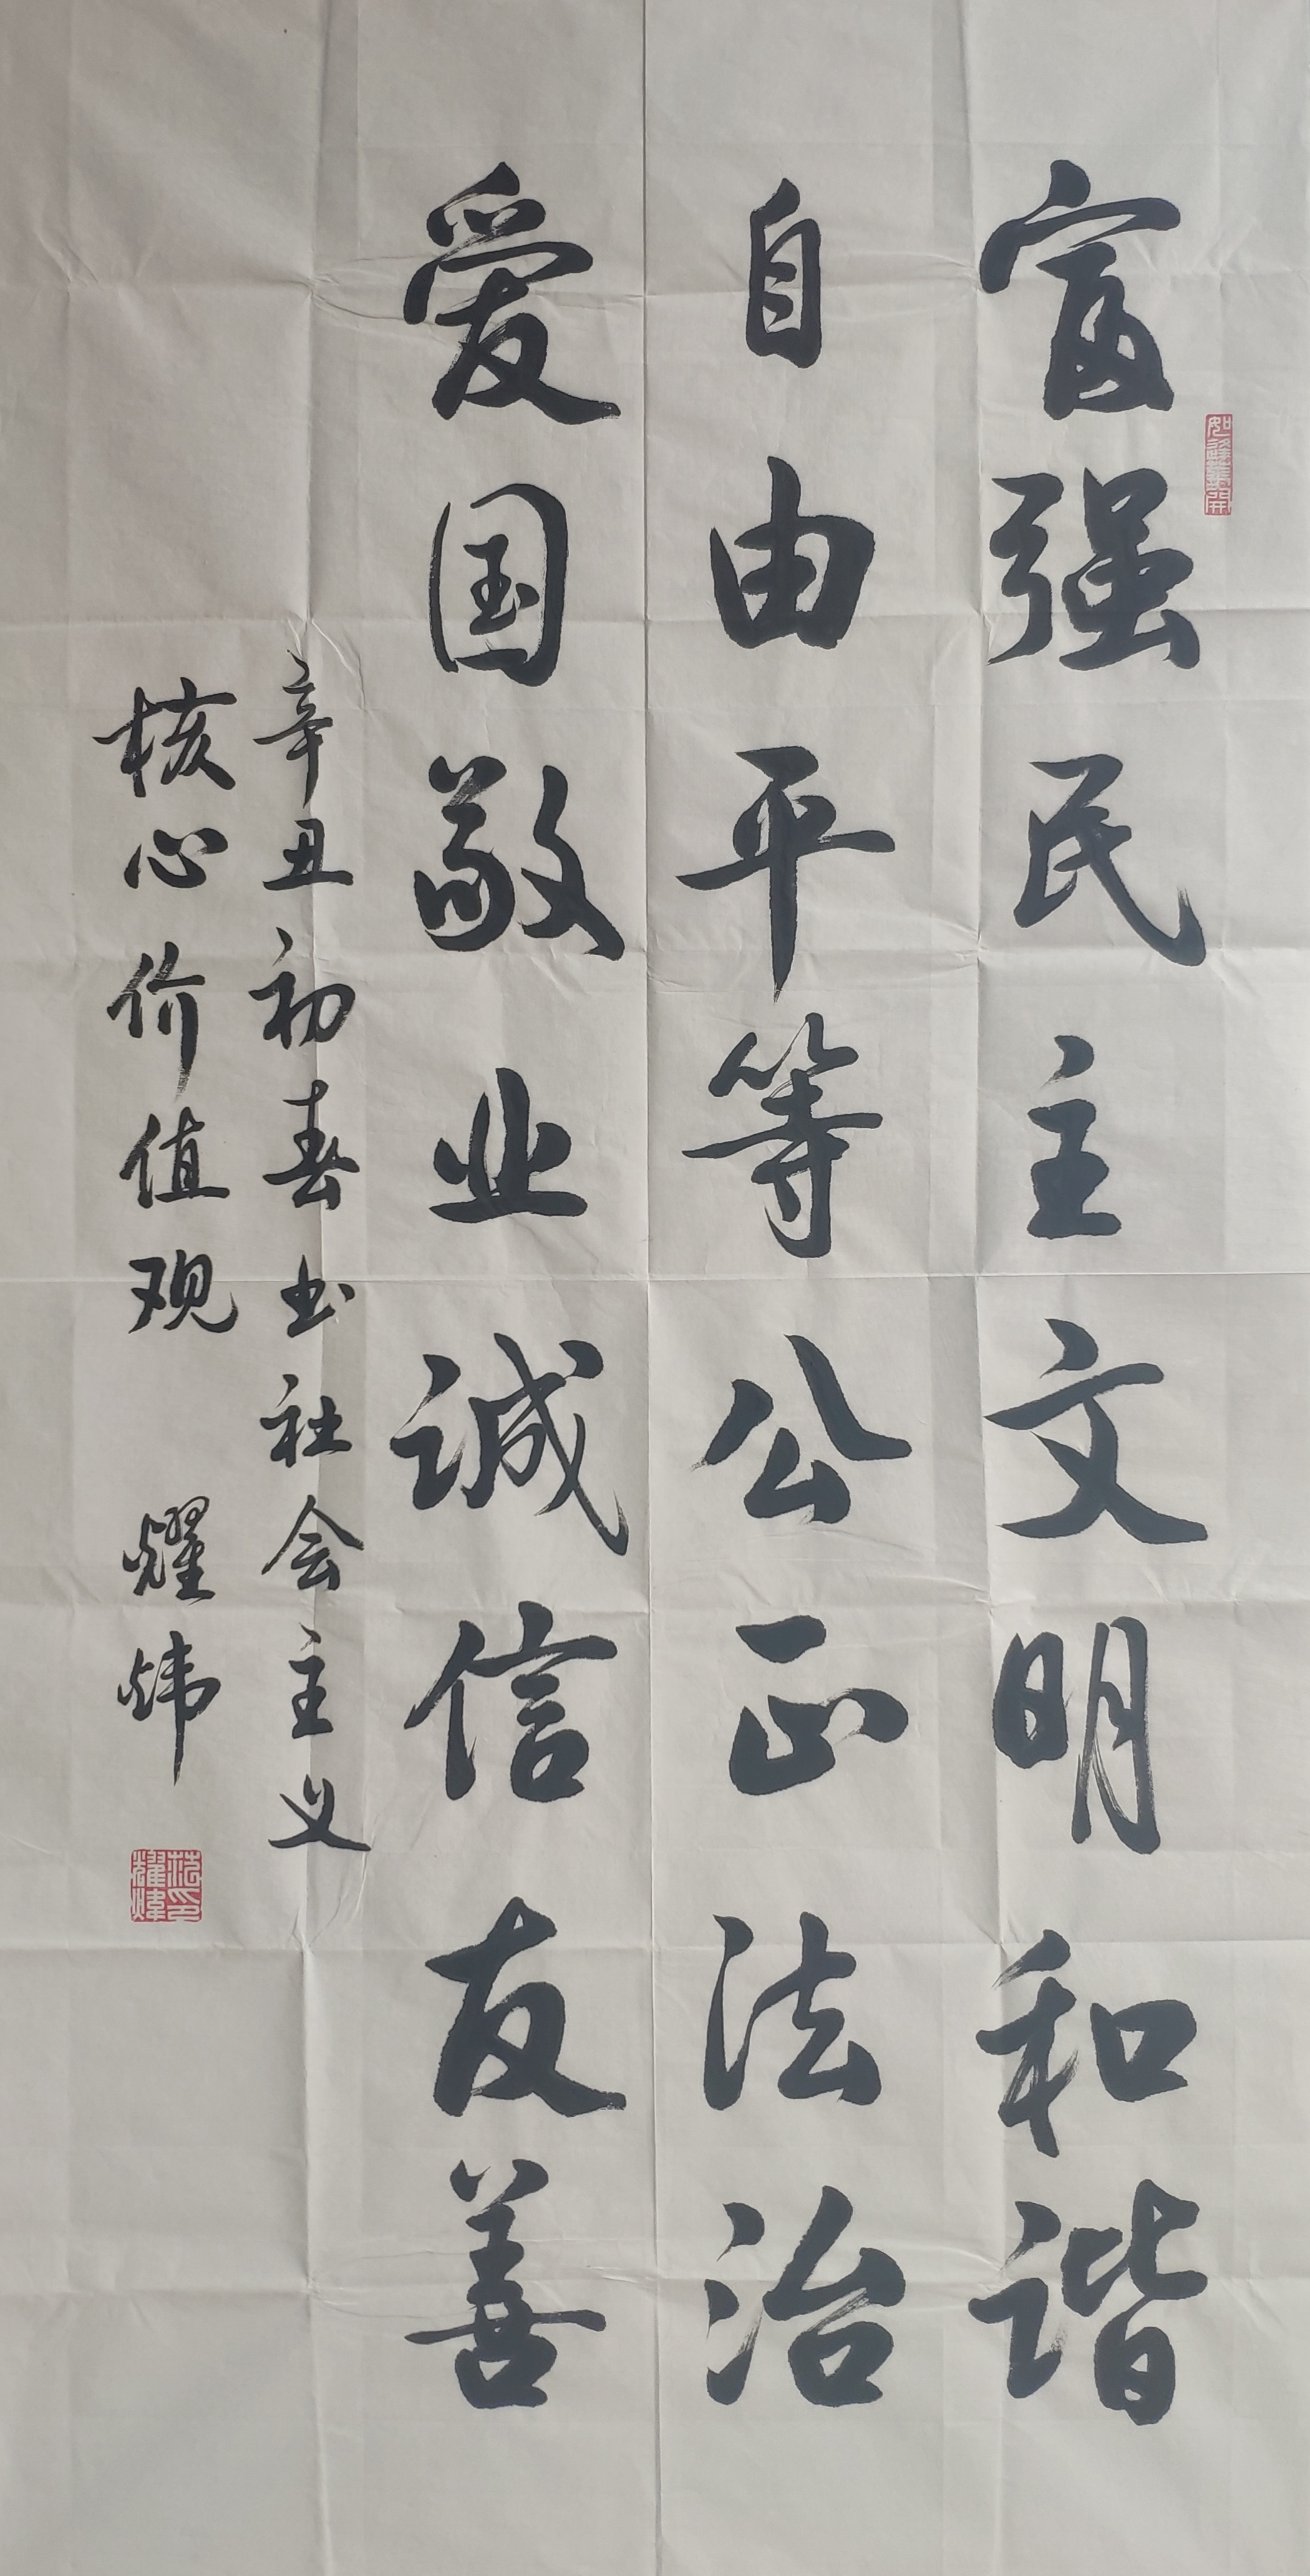 富强民主文明和谐
自由平等公正法治
爱国敬业诚信友善
辛丑初春书社会主义
核心价值观 耀炜